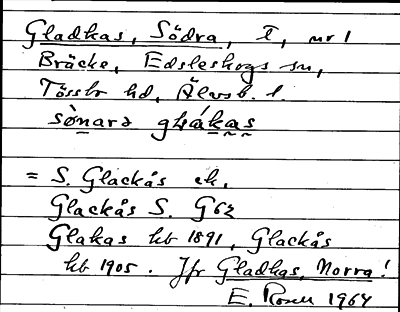 Gladhas, Södra, t, nr 1
Bräcke, Edsleskogs sn,
Tössbo hd, Älvsb. l.
sònarə glákas
= S. Glackås ek.
Glackås S. G62
Glakas hb 1891, Glackås
hb 1905. Jfr Gladhas, Norra!
E. Rosell 1964